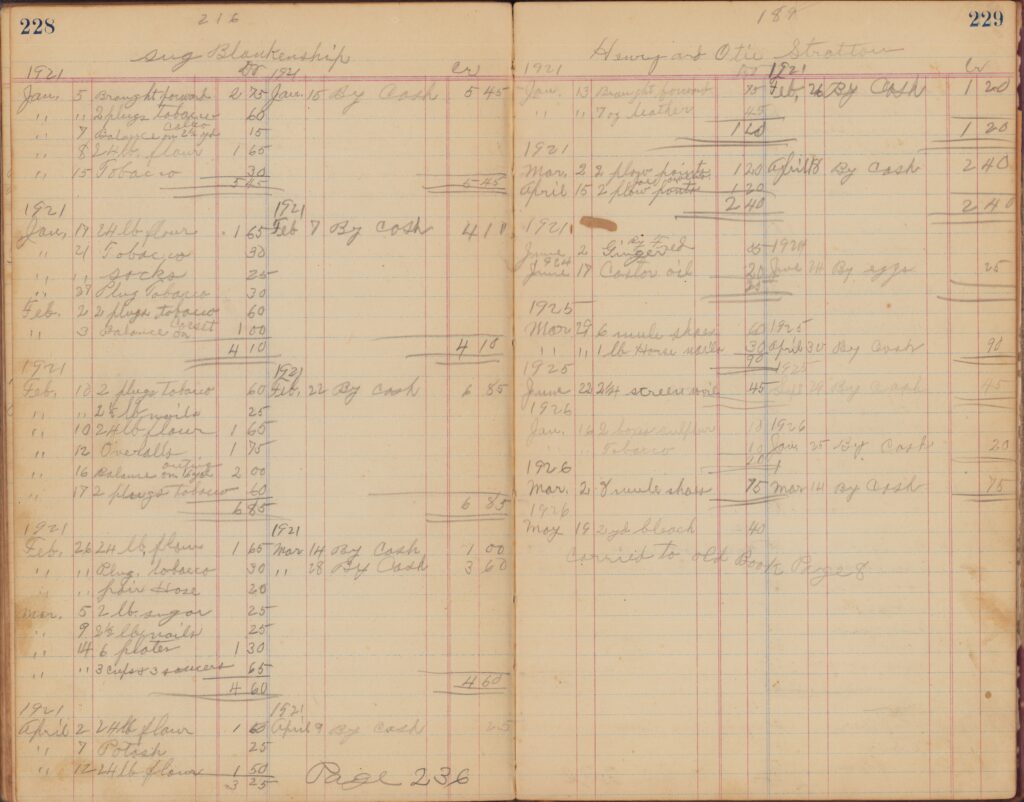 228
216
Sug Blankenship
1921 Dr 1921 Cr
Jan. 5 Brought forward 2 75 Jan. 15 By Cash 5 45
" " 2 plugs tobacco 60
" 7 Balance on calico 15
" 8 24 lb. flour 1 65
" 15 Tobacco 30
5 45 5 45
1921 1921
Jan. 17 24 lb flour 1 65 Feb 7 By Cash 4 10
" 21 Tobacco 30
" " Socks 25
" 27 Plug Tobacco 30
Feb. 2 2 plugs tobacco 60
" 3 Balance on corset 1 00
4 10 4 10
1921 1921
Feb. 10 2 plugs tobacco 60 Feb. 22 By Cash 6 85
" " 2½ lb nails 25
" 10 24 lb flour 1 65
" 12 Overalls 1 75
" 16 Balance on outing 2 00
" 17 2 plugs tobacco 60
6 85 6 85
1921 1921
Feb. 26 24 lb. flour 1 65 Mar 14 By Cash 1 00
" " Plug tobacco 30 " 28 By Cash 3 60
" " pair Hose 20
Mar. 5 2 lb. sugar 25
" 9 2½ lb nails 25
" 14 6 plates 1 30
" " 3 cups & 3 saucers 65
4 60 4 60
1921 1921
April 2 24 lb flour 1 50 April 9 By Cash 25
" 7 Potash 25
" 12 24 lb flour 1 50
3 25 Page 236
229
189
Henry and Otie Stratton
1921 Dr 1921 Cr
Jan. 13 Brought forward 75 Feb, 26 By Cash 1 20
" " 7 oz leather 45
1 20 1 20
1921
Mar. 2 2 plow points 1 20 April 18 By Cash 2 40
April 15 2 plow points 1 20
2 40 2 40
1921
June 2 Ginger 05 1924
1924
June 17 Castor oil 20 June 24 By eggs 25
25
1925
Mar 29 6 mule shoes 60 1925
" " 1 lb Horse nails 30 April 30 By Cash 90
90
1925 1925
June 22 2¼ screen wire 45 Sept 19 By Cash 45
1926
Jan. 16 2 boxes sulfur 10 1926
" " Tobacco 10 Jan 25 By Cash 20
20
1926
Mar. 2 8 mule shoes 75 Mar 14 By Cash 75
1926
May 19 2 yd bleach 40
Carried to old Book Page 8